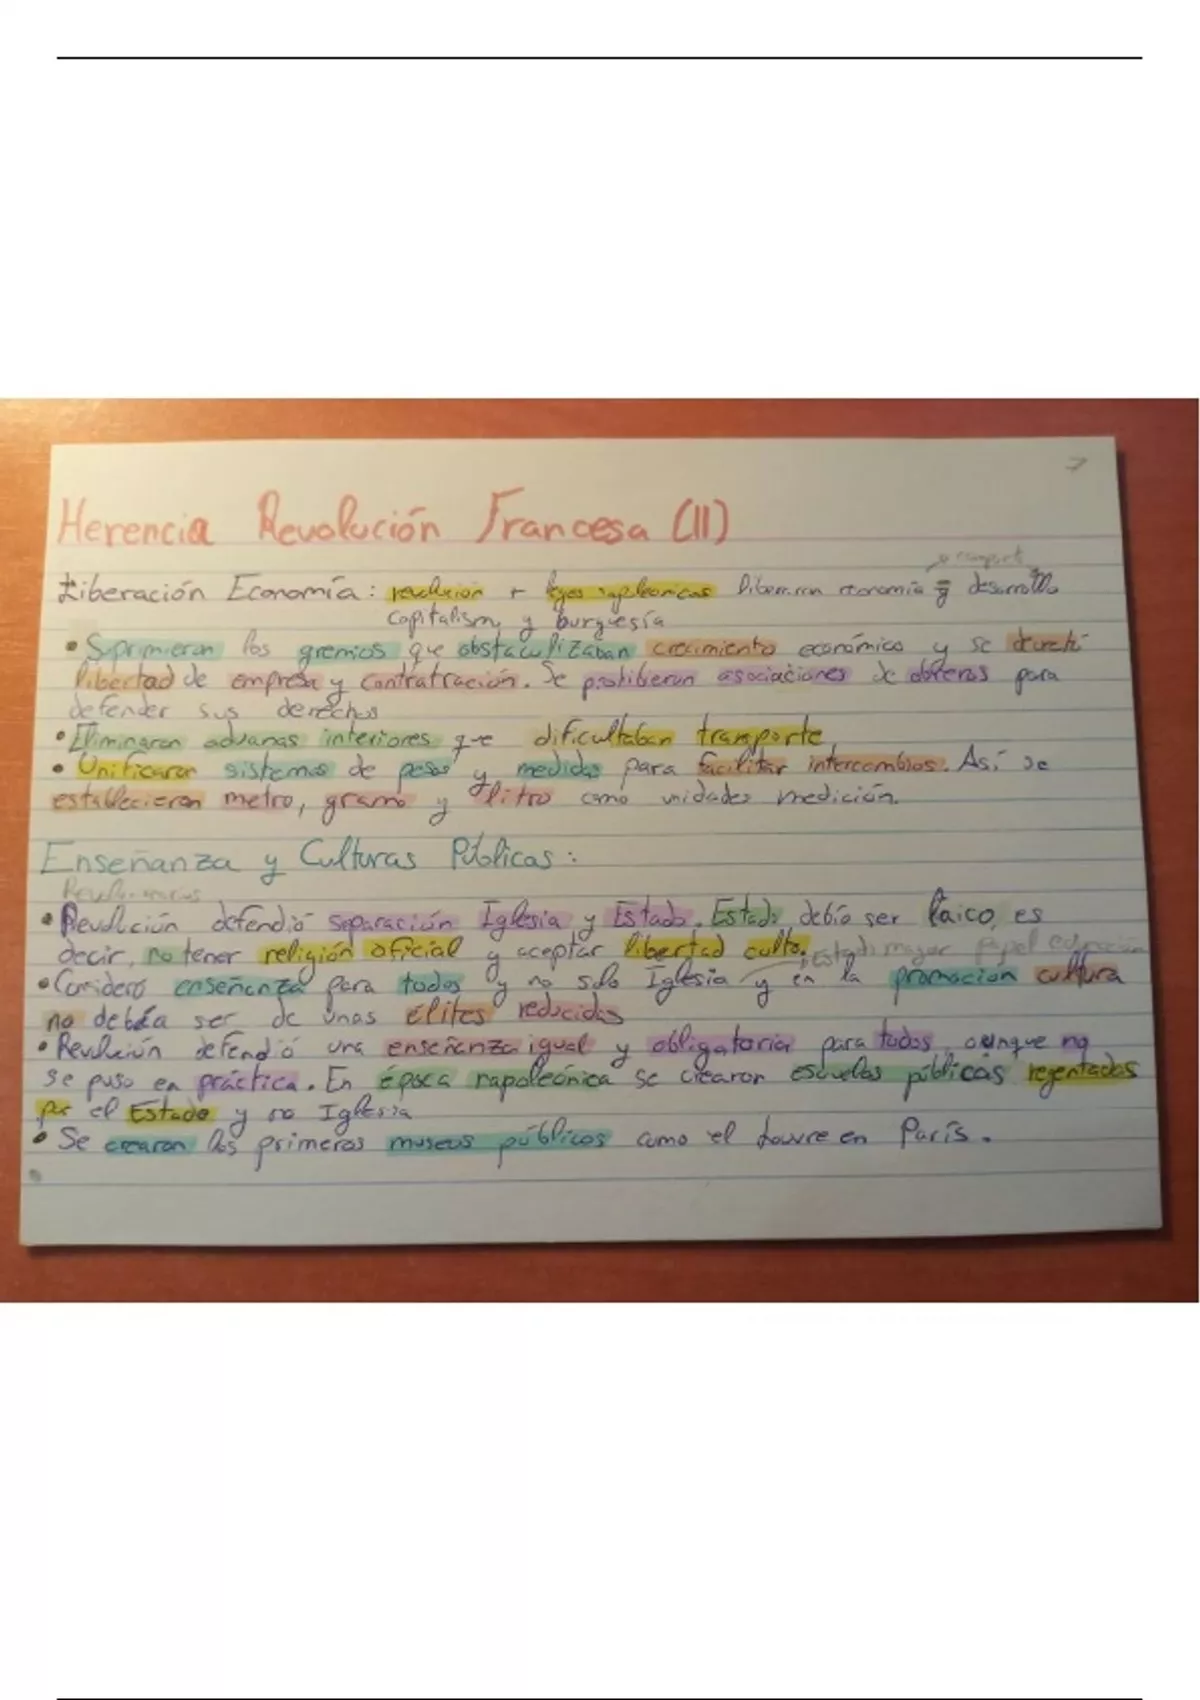 7
Herencia Revolución Francesa (II)
Liberación Economía: revolución + leyes napleonicas liberaron economía y desarrollo
capitalismo y burguesía
• Suprimieron los gremios que obstaculizaban crecimiento económico y se decretó
libertad de empresa y contratración. Se prohiberon asociaciones de obreros para
defender sus derechos
• Eliminaron aduanas interiores que dificultaban transporte
• Unificaron sistemas de pesos y medidas para facilitar intercambios. Así se
establecieron metro, gramo y litro como unidades medición.
Enseñanza y Culturas Públicas:
• Revolución defendió separación Iglesia y Estado. Estado debía ser laico, es
decir, no tener religión oficial y aceptar libertad culto. Estado mayor papel educación
• Consideró enseñanza para todos y no solo Iglesia y en la promoción cultura
no debía ser de unas élites reducidas
• Revolución defendió una enseñanza igual y obligatoria para todos, aunque no
se puso en práctica. En época napoleónica se crearon escuelas públicas regentadas
por el Estado y no Iglesia
• Se crearon los primeros museos públicos como el Louvre en París.